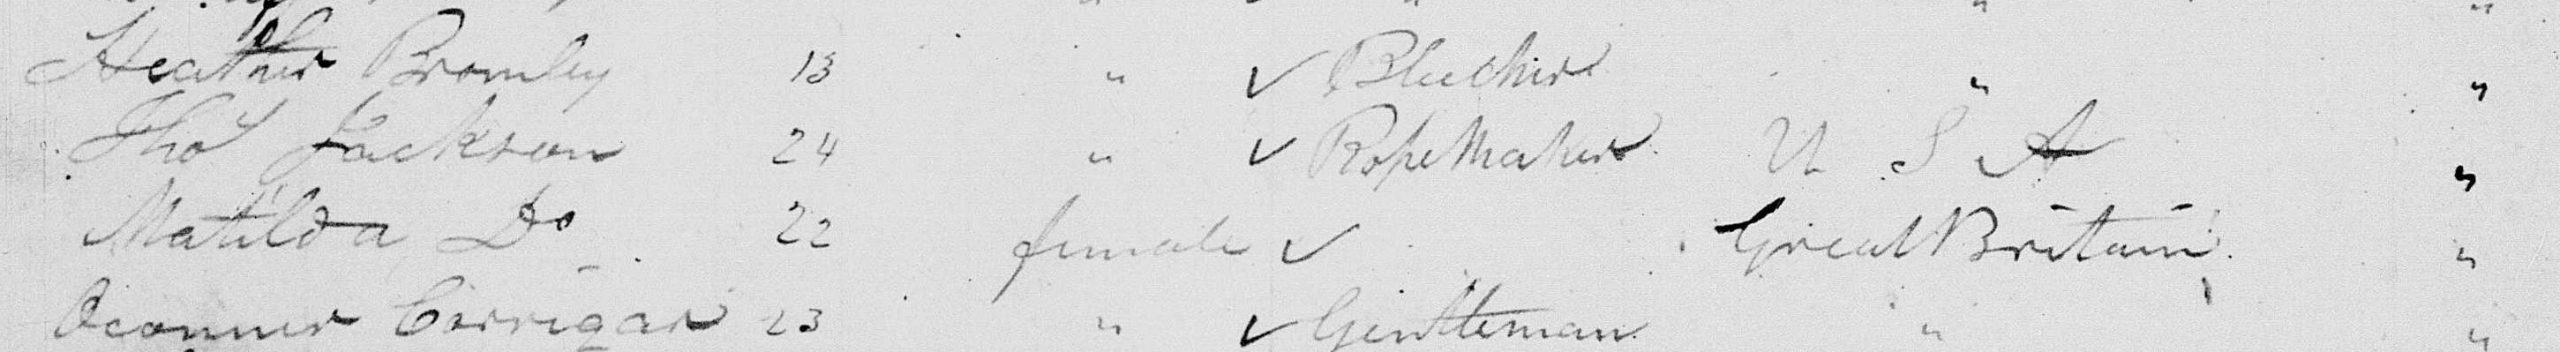 Heather Bromley 13 " ✓ Bleecher " "
Tho^s Jackson 24 " ✓ RopeMaker U S A "
Matilda D^o 22 female ✓ Great Britain "
Oconner Corrigan 23 " ✓ Gentleman " "